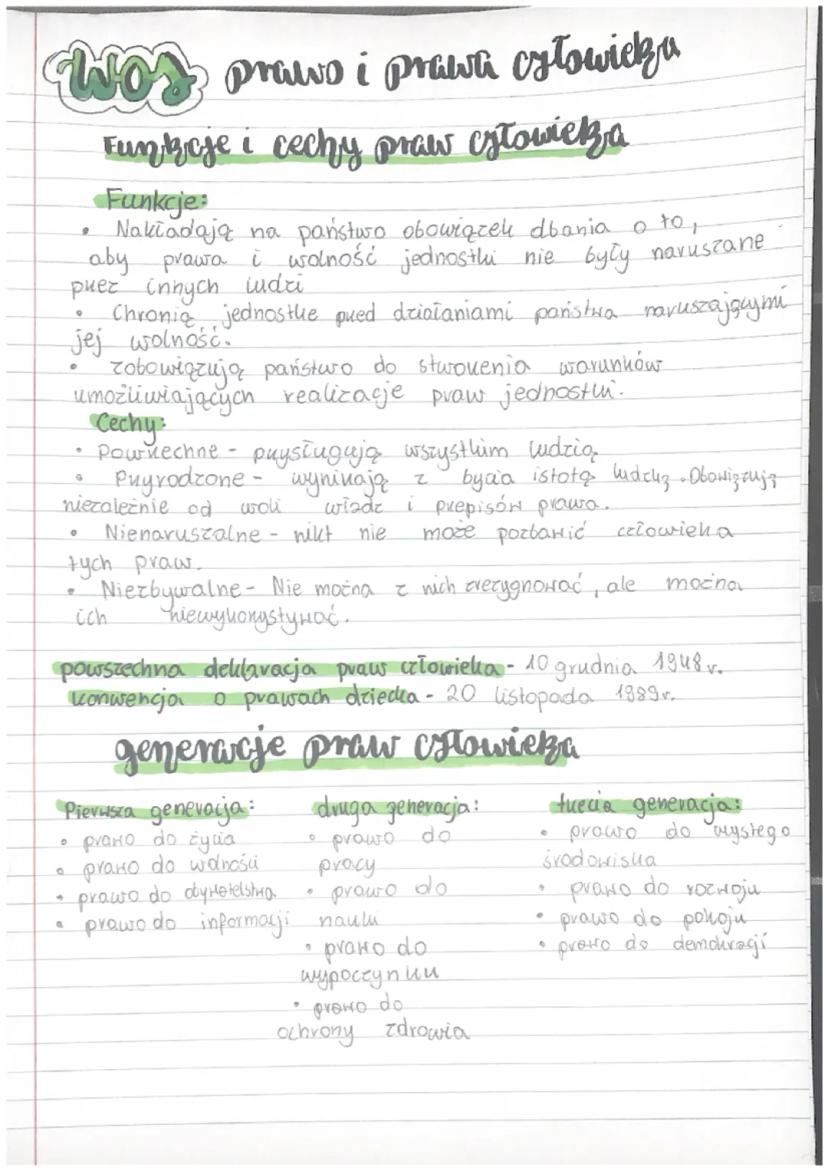 WOS prawo i prawa człowieka
Funkcje i cechy praw człowieka
Funkcje:
• Nakładają na państwo obowiązek dbania o to,
aby prawa i wolność jednostki nie były naruszane
przez innych ludzi
• Chronią jednostkę przed działaniami państwa naruszającymi
jej wolność.
• zobowiązują państwo do stworzenia warunków
umożliwiających realizację praw jednostki.
Cechy:
• Powszechne - przysługują wszystkim ludzią
• Przyrodzone - wynikają z bycia istotą ludzką. Obowiązują
niezależnie od woli władz i przepisów prawa.
• Nienaruszalne - nikt nie może pozbawić człowieka
tych praw.
• Niezbywalne - Nie można z nich zrezygnować, ale można
ich niewykorzystywać.
powszechna deklaracja praw człowieka - 10 grudnia 1948 r.
konwencja o prawach dziecka - 20 listopada 1989r.
generacje praw człowieka
Pierwsza generacja:
• prawo do życia
• prawo do wolności
• prawo do obywatelstwa
• prawo do informacji
druga generacja:
• prawo do
pracy
• prawo do
nauki
• prawo do
wypoczynku
• prawo do
ochrony zdrowia
trzecia generacja:
• prawo do czystego
środowiska
• prawo do rozwoju
• prawo do pokoju
• prawo do demokracji